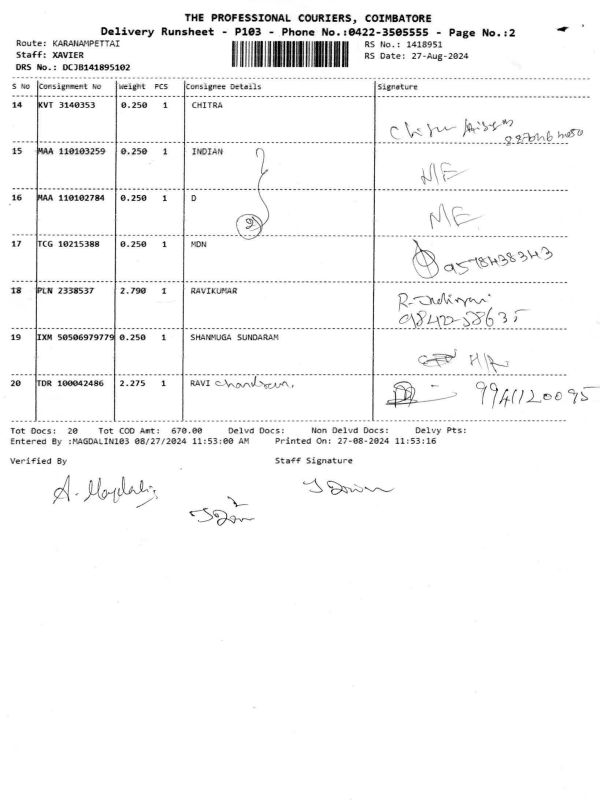 THE PROFESSIONAL COURIERS, COIMBATORE
Delivery Runsheet - P103 - Phone No.:0422-3505555 - Page No.:2
Route: KARANAMPETTAI RS No.: 1418951
Staff: XAVIER RS Date: 27-Aug-2024
DRS No.: DCJB141895102
S No Consignment No Weight PCS Consignee Details Signature
14 KVT 3140353 0.250 1 CHITRA
15 MAA 110103259 0.250 1 INDIAN
NE
16 MAA 110102784 0.250 1 D
2
NE
17 TCG 10215388 0.250 1 MDN
9578438343
18 PLN 2338537 2.790 1 RAVIKUMAR
09842-58635
19 IXM 50506979779 0.250 1 SHANMUGA SUNDARAM
H/R
20 TDR 100042486 2.275 1 RAVI chandran.
9941120095
Tot Docs: 20 Tot COD Amt: 670.00 Delvd Docs: Non Delvd Docs: Delvy Pts:
Entered By :MAGDALIN103 08/27/2024 11:53:00 AM Printed On: 27-08-2024 11:53:16
Verified By Staff Signature